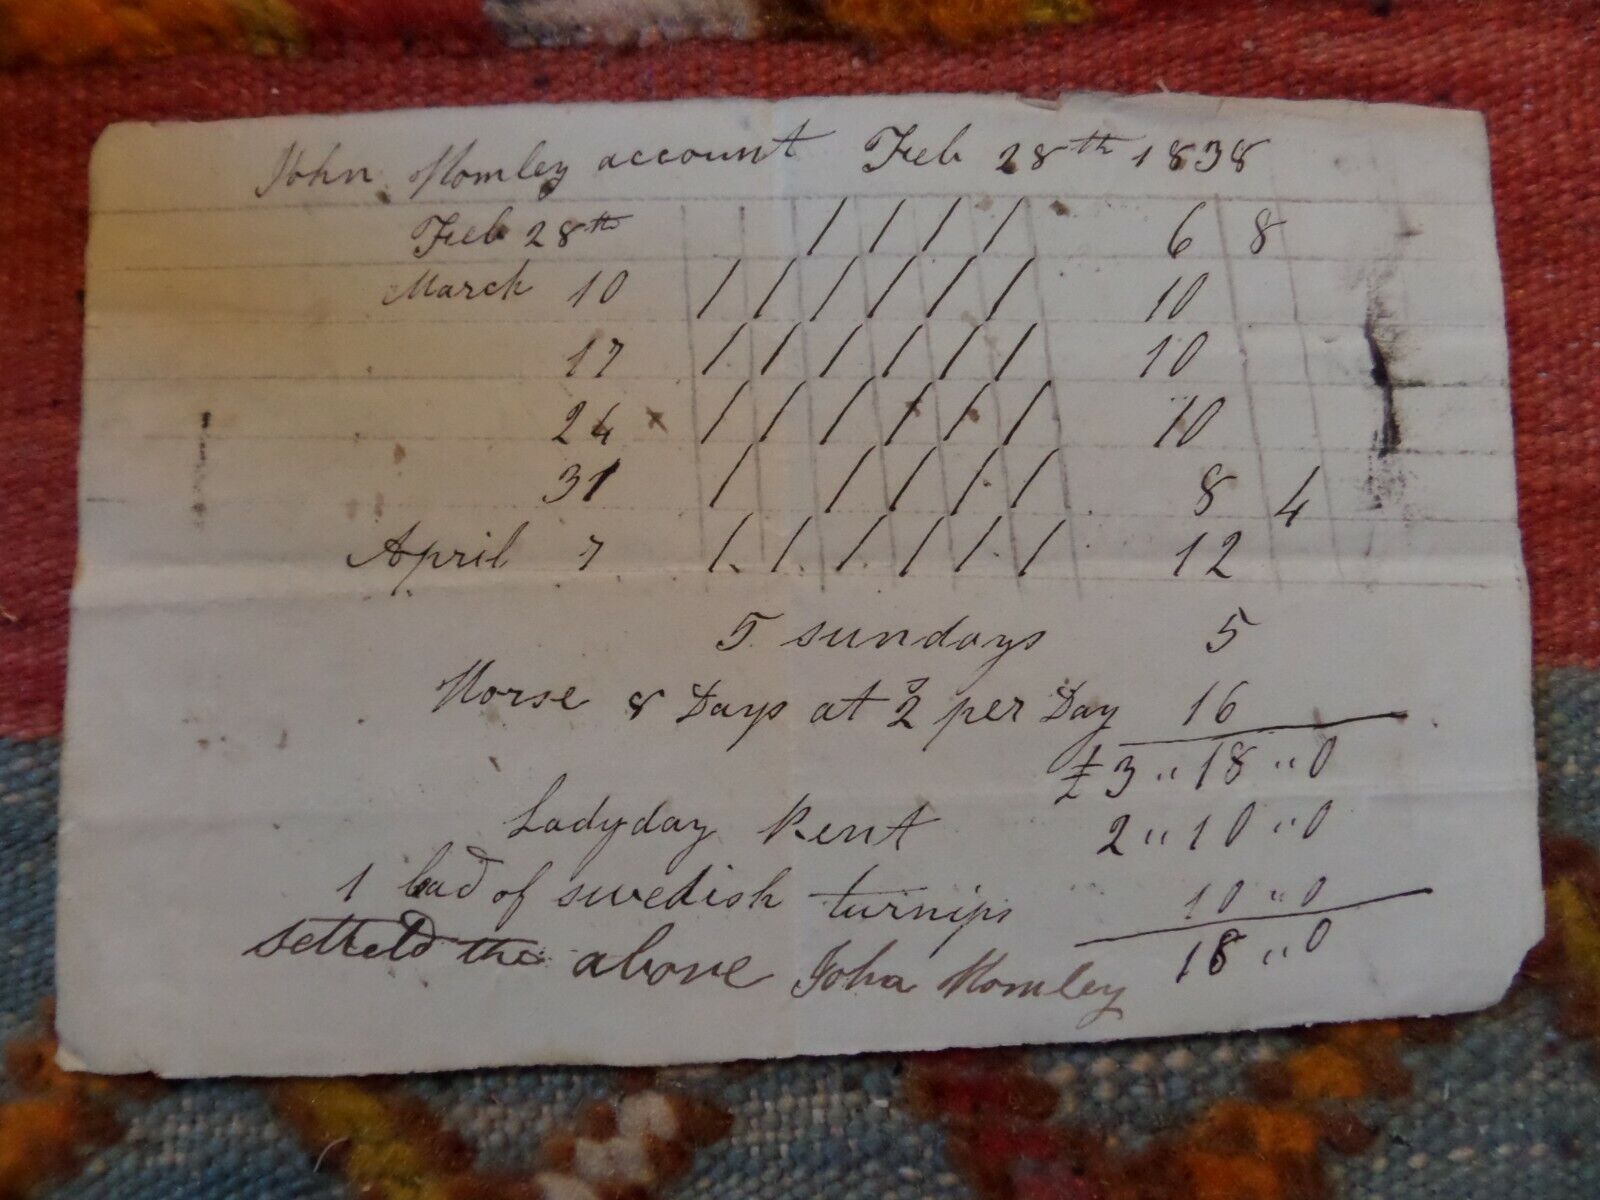 John Homley account Feb 28th 1838
Feb 28th / / / / 6 8
March 10 / / / / / / 10
17 / / / / / / 10
24 / / / / / / 10
31 / / / / / 8 4
April 7 / / / / / / 12
5 sundays 5
Horse 8 Days at 2 per Day 16
£3 " 18 " 0
Ladyday Rent 2 " 10 " 0
1 load of swedish turnips 10 " 0
setteld the above John Homley 18 " 0